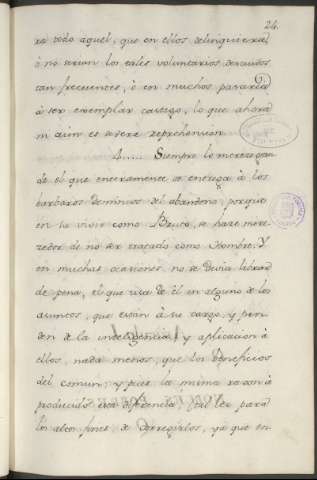 24.
ra todo aquel, que en ellos delinquiera
ô no serian los tales voluntarios descuidos
tan frecuentes, ô en muchos pararía
à ser exemplar castigo, lo que ahora
ni aun es leve reprehension
4.... Siempre lo merece gran-
de el que enteramente se entrega à los
barbaros dominios del abandono, porque
en la vivir como Bruto, se hace mere-
zedor de no ser tratado como Hombre. Y
en muchas ocasiones no se devia librar
de pena, el que usa de él en alguno de los
asuntos, que estàn à su cargo, y pen-
den de la inteligencia, y aplicacion à
ellos, nada menos, que los beneficios
del comun; y pues la misma razon à
producido esta diferencia, sea ley para
los altos fines de corregirlos, yà que en